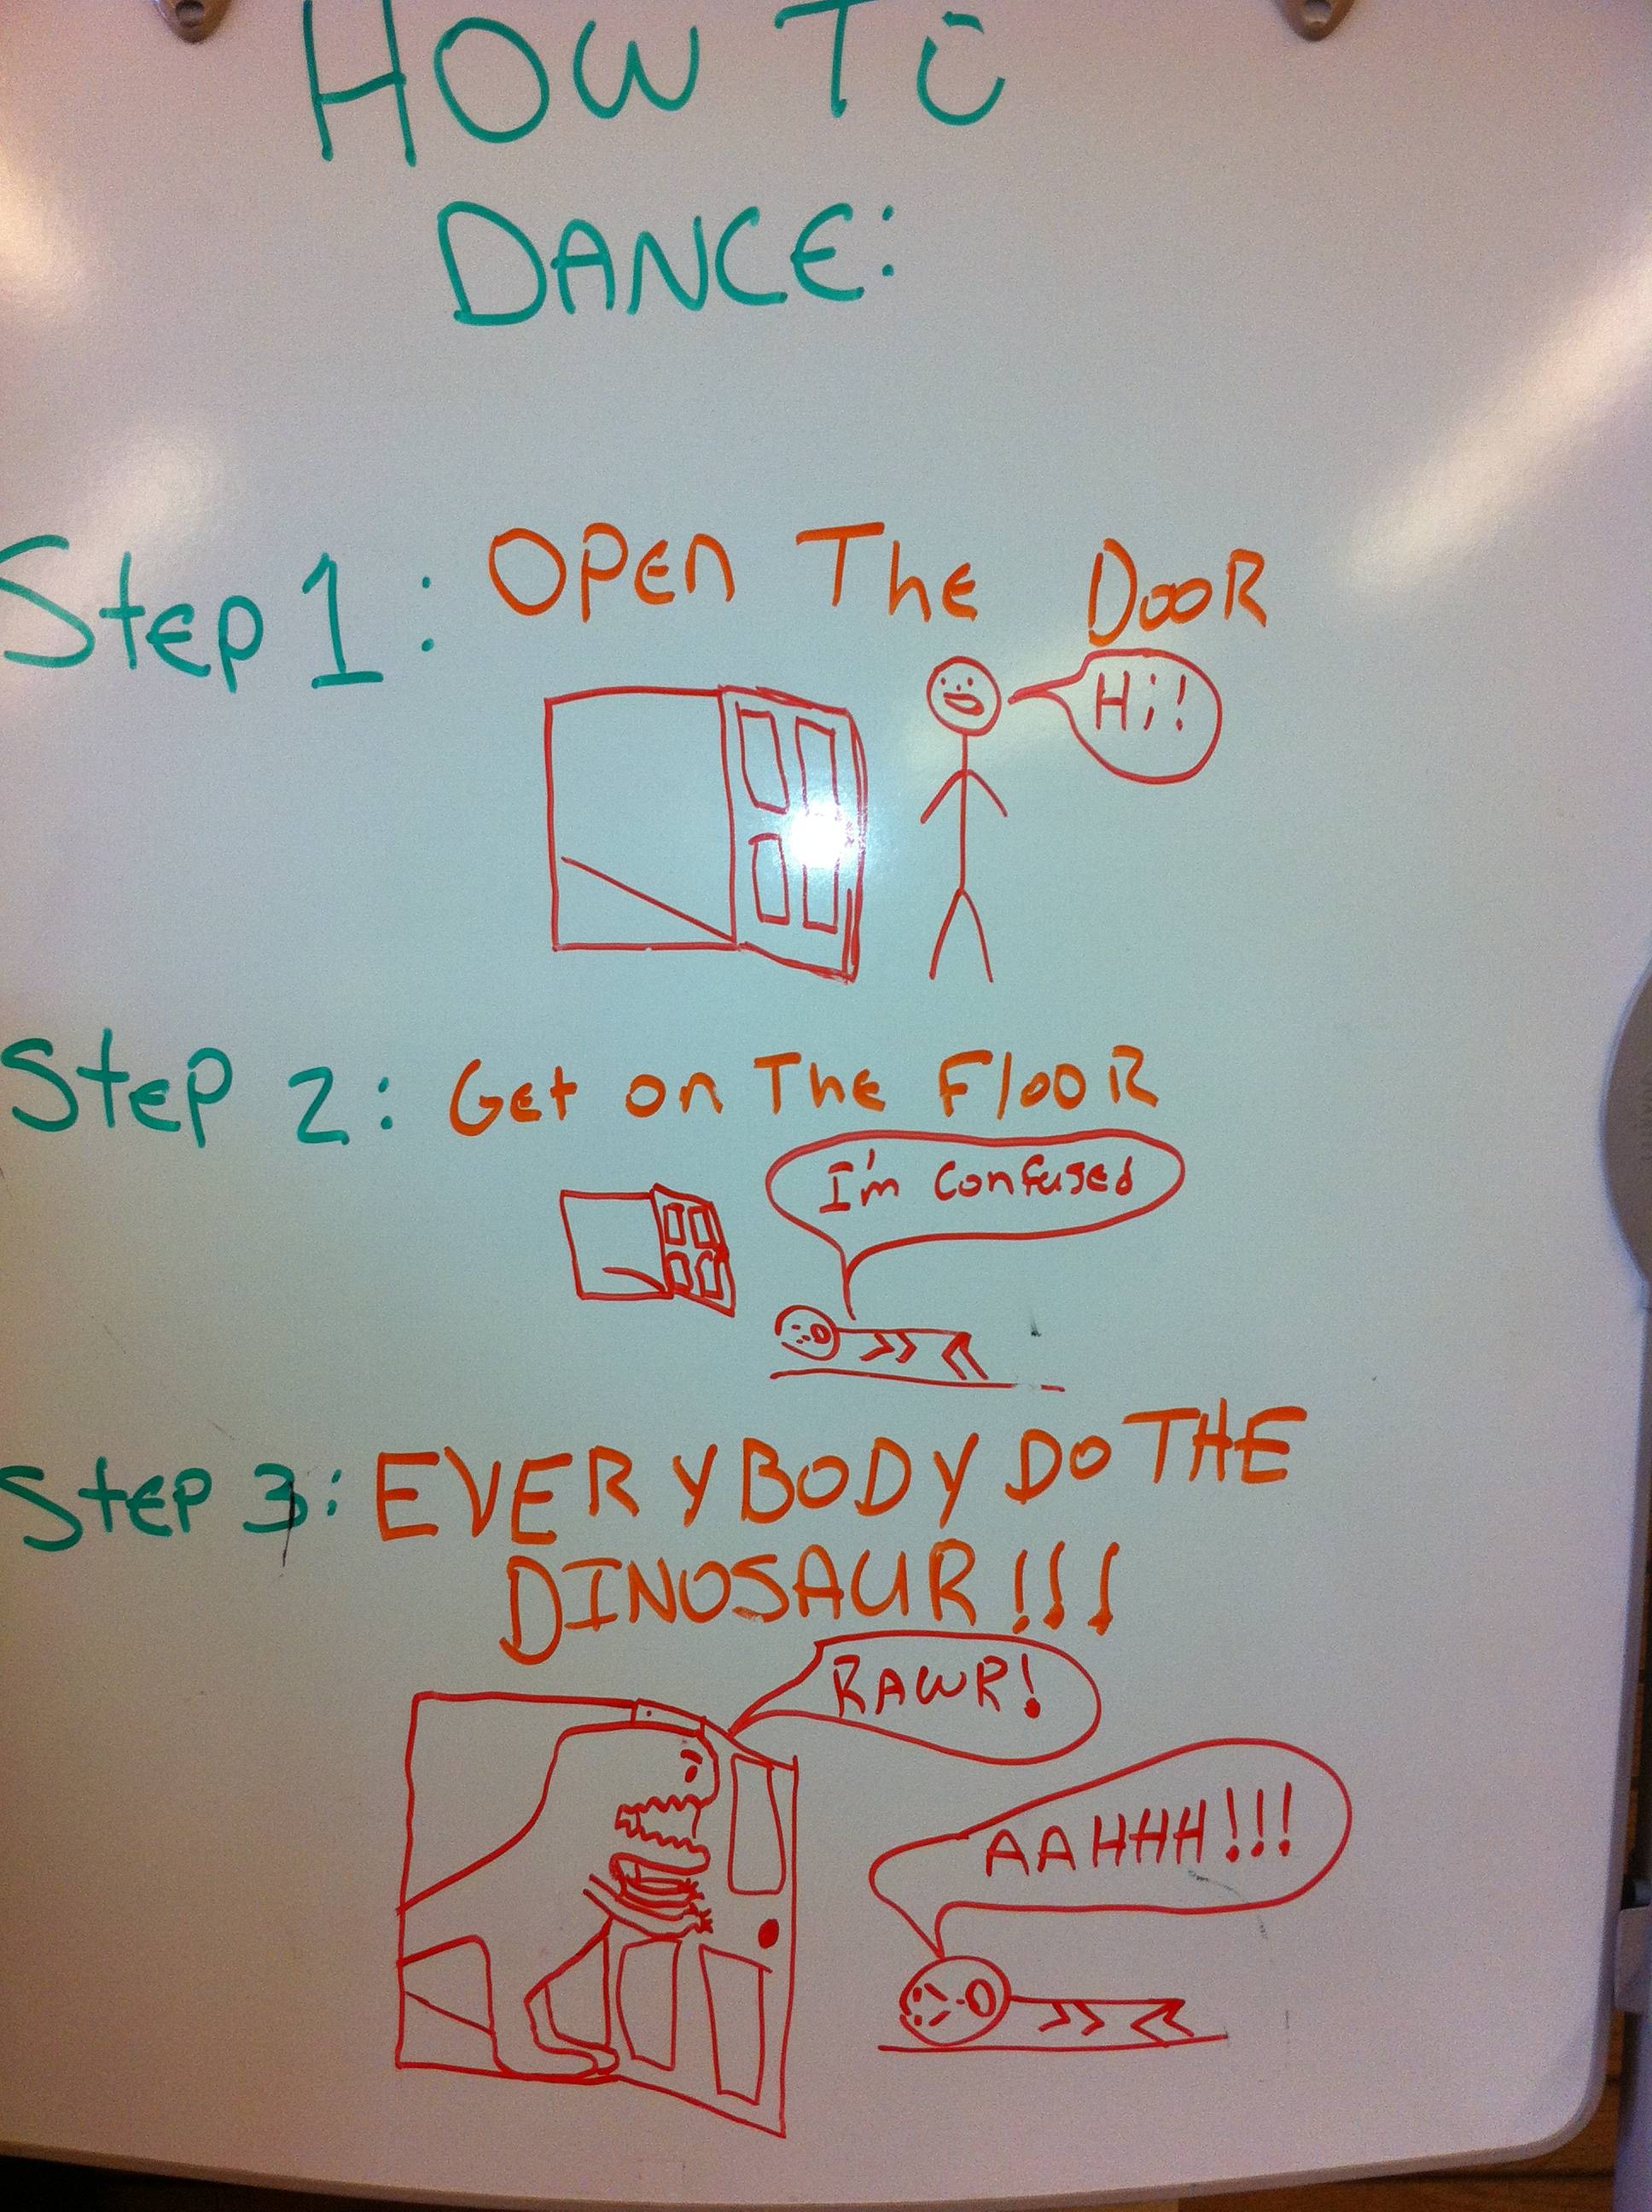 HOW TO
DANCE:
Step 1: OPEN The DooR
Hi!
Step 2: Get on The FlooR
I'm confused
Step 3: EVERYBODY DO THE
DINOSAUR!!!
RAWR!
AAHHH!!!